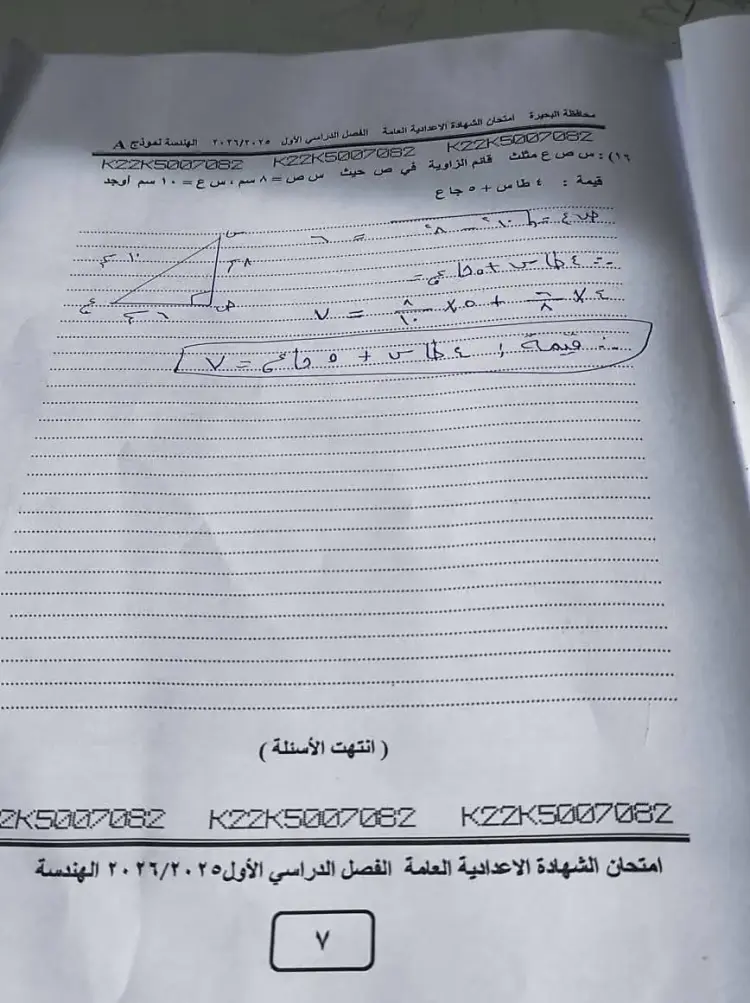 محافظة البحيرة امتحان الشهادة الاعدادية العامة الفصل الدراسي الأول ٢٠٢٦/٢٠٢٥ الهندسة نموذج A
K22K5007082 K22K5007082 K22K5007082
١٦) : س ص ع مثلث قائم الزاوية في ص حيث س ص = ٨ سم ، س ع = ١٠ سم أوجد
قيمة : ٤ طا س + ٥ جا ع
س
١٠ سم
٨ سم
ع
ص
٦ سم
ص ع = √١٠² − ٨² = ٦
∴ ٤ طا س + ٥ جا ع =
٤ × ٦/٨ + ٥ × ٨/١٠ = ٧
∴ قيمة : ٤ طا س + ٥ جا ع = ٧
( انتهت الأسئلة )
2K5007082 K22K5007082 K22K5007082
امتحان الشهادة الاعدادية العامة الفصل الدراسي الأول ٢٠٢٦/٢٠٢٥ الهندسة
٧